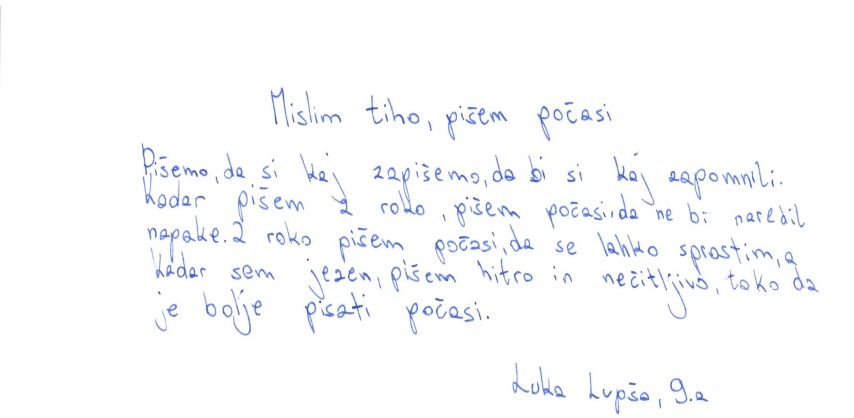 Mislim tiho, pišem počasi
Pišemo, da si kaj zapišemo, da bi si kaj zapomnili.
Kadar pišem z roko, pišem počasi, da ne bi naredil
napake. Z roko pišem počasi, da se lahko sprostim, a
kadar sem jezen, pišem hitro in nečitljivo, tako da
je bolje pisati počasi.
Luka Lupša, 9.a